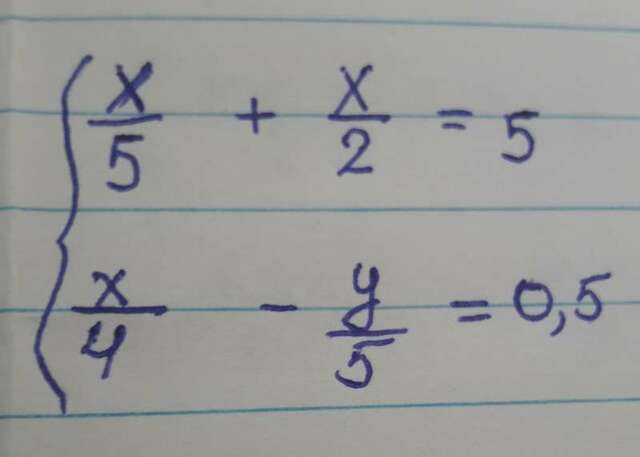 x/5 + x/2 = 5
x/4 - y/5 = 0,5